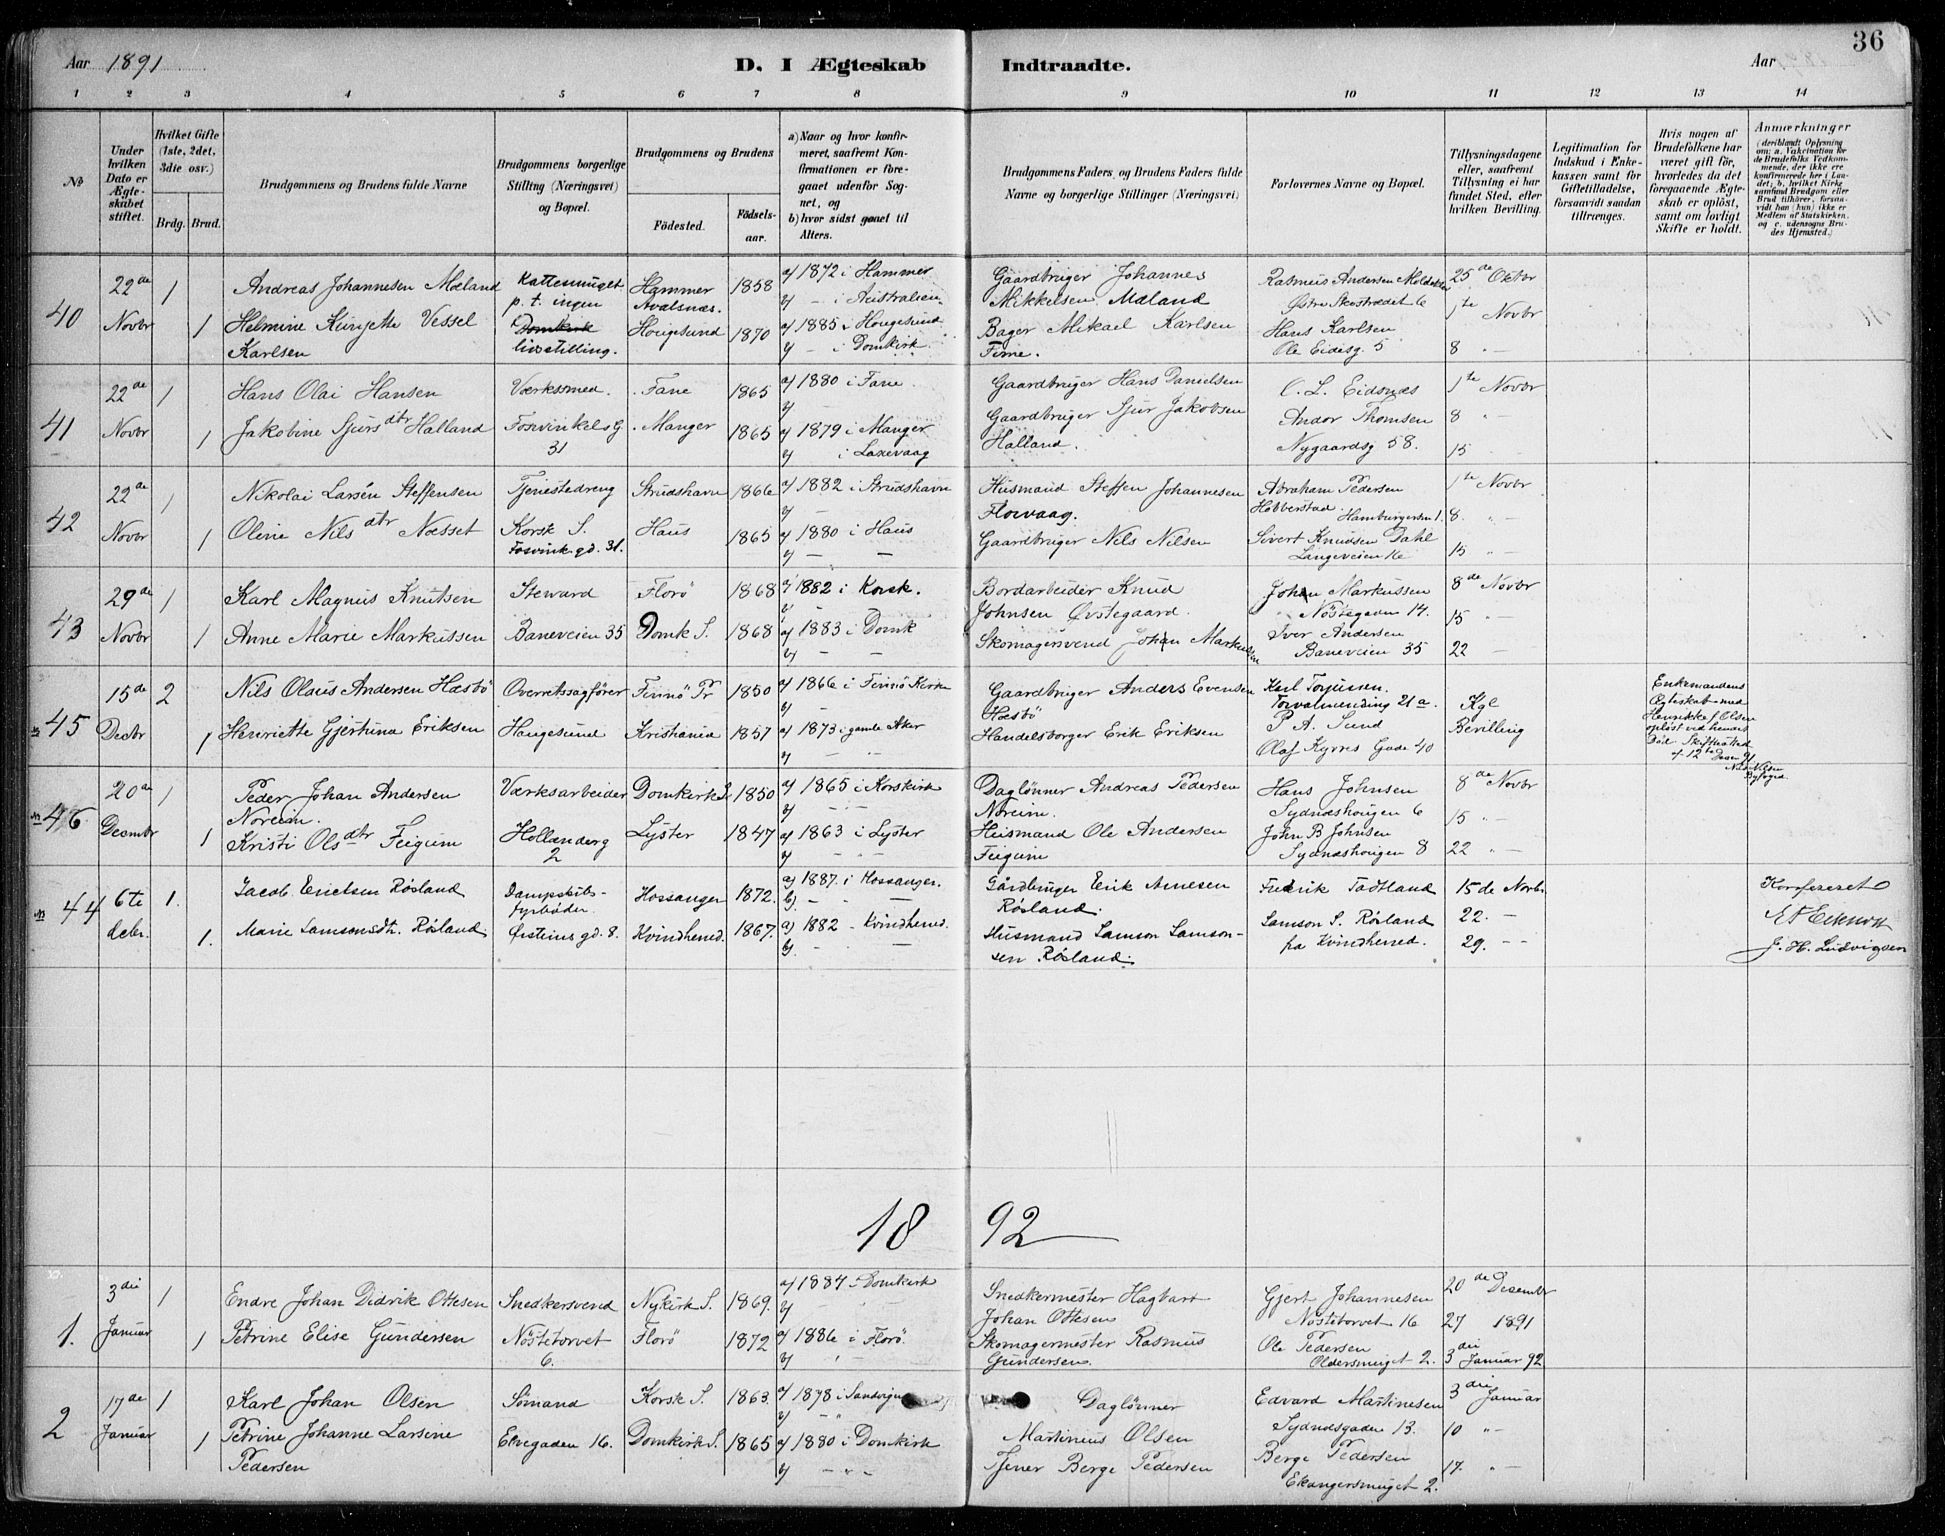 Aar 1891
D. I Ægteskab Indtraadte.
Aar
36
1 2 3 4 5 6 7 8 9 10 11 12 13 14
No
Under hvilken Dato er Ægteskabet stiftet.
Hvilket Gifte (1ste, 2det, 3die osv.)
Brdg. Brud.
Brudgommens og Brudens fulde Navne
Brudgommens borgerlige Stilling (Næringsvei) og Bopæl.
Brudgommens og Brudens
Fødested.
Fødselsaar.
a) Naar og hvor konfirmeret, saafremt Konfirmationen er foregaaet udenfor Sognet, og
b) hvor sidst gaaet til Alters.
Brudgommens Faders, og Brudens Faders fulde Navne og borgerlige Stillinger (Næringsvei)
Forlovernes Navne og Bopæl.
Tillysningsdagene eller, saafremt Tillysning ei har fundet Sted, efter hvilken Bevilling.
Legitimation for Indskud i Enkekassen samt for Giftetilladelse, forsaavidt saadan tiltrænges.
Hvis nogen af Brudefolkene har været gift før, hvorledes da det foregaaende Ægteskab er opløst, samt om lovligt Skifte er holdt.
Anmærkninger (deriblandt Oplysning om: a. Vakcination for de Brudefolks Vedkommende, der ikke ere konfirmerede her i Landet; b. hvilket Kirkesamfund Brudgom eller Brud tilhører, forsaavidt han (hun) ikke er Medlem af Statskirken, og c. udensogns Brudes Hjemsted.)
40
22de Novbr
1
Andreas Johannesen Mæland
Kattesmuget p. t. ingen Domkirk livsstilling.
Hammer Avalsnæs.
1858
a) 1872 i Hammer
b) — i Australien
Gaardbruger Johannes Mikkelsen Mæland
Rasmus Andersen
Østre Skostrædet 6
25de Oktbr
1te Novbr
8 " —
1
Helmine Kunjette Vessel Karlsen
Hougsund
1870
a) 1885 i Hougesund
b) — i Domkirk.
Bager Mikael Karlsen
Hans Karlsen
Ole Eidesg. 5
41
22de Novbr
1
Hans Olai Hansen
Værkssmed.
Fane
1865
a) 1880 i Fane
b) —
Gaardbruger Hans Danielsen
O. L. Eidsnæs
1te Novbr
1
Jakobine Sjursdtr Halland
Fosvinkelsg 31
Manger
1865
a) 1879 i Manger
b) i Laxevaag
Gaardbruger Sjur Jakobsen Halland.
Andor Thomsen
Nygaardsg 58.
8 " —
15 " —
42
22de Novbr
1
Nikolai Larsen Steffensen
Tjenestedreng
Strudshavn
1866
a) 1882 i Strudshavn
b) —
Husmand Steffen Johannesen Florvaag.
Abraham Pedersen Hobberstad
Hamburgersm 1.
1te Novbr
8. " —
1
Oline Nilsdtr Næsset
Korsk S.
Fosvink gd. 31.
Haus
1865
a) 1880 i Haus
b) — —
Gaardbruger Nils Nilsen
Sivert Knudsen Dahl
Langeveien 16
15 " —
43
29de Novbr
1
Karl Magnus Knutsen
Steward
Florø
1868
a) 1882 i Korsk.
b) —
Bordarbeider Knud Johnsen Øvstegaard.
Johan Markussen
Nøstegaden 14.
8de Novbr
15 " —
1
Anne Marie Markussen
Baneveien 35
Domk S.
1868
a) 1883 i Domk
b) — —
Skomagersvend Johan Markussen
Iver Andersen
Baneveien 35
22 —
No 45
15de Decbr
2
Nils Olaus Andersen Hæsbø
Overretssagfører
Finnø Pr
1850
a) 1866 i Finnø Kirke
b) —
Gaardbruger Anders Evensen Hæsbø
Karl Torjussen.
Torvalmending 21 a.
Kgl Bevilling
Enkemandens Ægteskab med Henrikke J Olsen opløst ved hendes Død Skifteattest af 12te Decbr 91
1
Henriette Gjertina Eriksen
Haugesund
Kristiania
1857
a) 1873 i gamle Aker
b) " —
Handelsborger Erik Eriksen
P. A. Sund
Olaf Kyrres Gade 40
No 46
20de Decembr
1
Peder Johan Andersen Noreim.
Værksarbeider
Domkirk S.
1850
a) 1865 i Korskirk
b) — " —
Daglønner Andreas Pedersen Noreim.
Hans Johnsen
Sydnæshougen 6
8de Novbr
15 " —
1
Kristi Olsdtr Feigum
Hollænderg 2
Lyster
1847
a) 1863 i Lyster
b) — " —
Husmand Ole Andersen Feigum
John B Johnsen
Sydnæshougen 8
22 " —
No 44
6te debr.
1.
Jacob Erichsen Røsland
Dampskibsfyrbøder.
Hossanger
1872.
a) 1887. i Hossanger.
b) — —
Gårdbruger Erik Arnesen Røsland.
Fredrik Tadtland
15 de Novb.
Konfereret
1.
Marie Samsonsdt. Røsland
Øisteins gd. 8.
Kvindhered.
1867.
a) 1882 - Kvindhered.
b) — —
Husmand Samson Samsonsen Røsland.
Samson S. Røsland
fra Kvindhered.
22. —
29. - -
J. H. Ludvigsen
1892
1.
3die Januar
1
Endre Johan Didrik Ottesen
Snedkersvend
Nykirk S.
1869.
a) 1884 i Domkirk
b) " —
Snedkermester Hagbart Johan Ottesen
Gjert Johannesen
Nøstetorvet 16
20de Desember
27 1891
1
Petrine Elise Gundersen
Nøstetorvet 6.
Florø
1872
a) 1886 i Florø.
b) " —
Skomagermester Rasmus Gundersen.
Ole Pedersen
Oldersmuget 2.
3die Januar 92
2
17de Januar
1
Karl Johan Olsen
Sømand
Korsk S.
1863.
a) 1878 i Sandviguens
b) — " —
Daglønner Martinius Olsen
Edvard Martinesen
Sydnæsgaden 13.
3die Januar
10 " —
1
Petrine Johanne Larsine Pedersen
Elvegaden 16.
Domkirk S.
1865
a) 1880 i Domkirk
b) — " —
Tjener Berge Pedersen
Berge Pedersen
Ekangersmuget 2.
17. " —